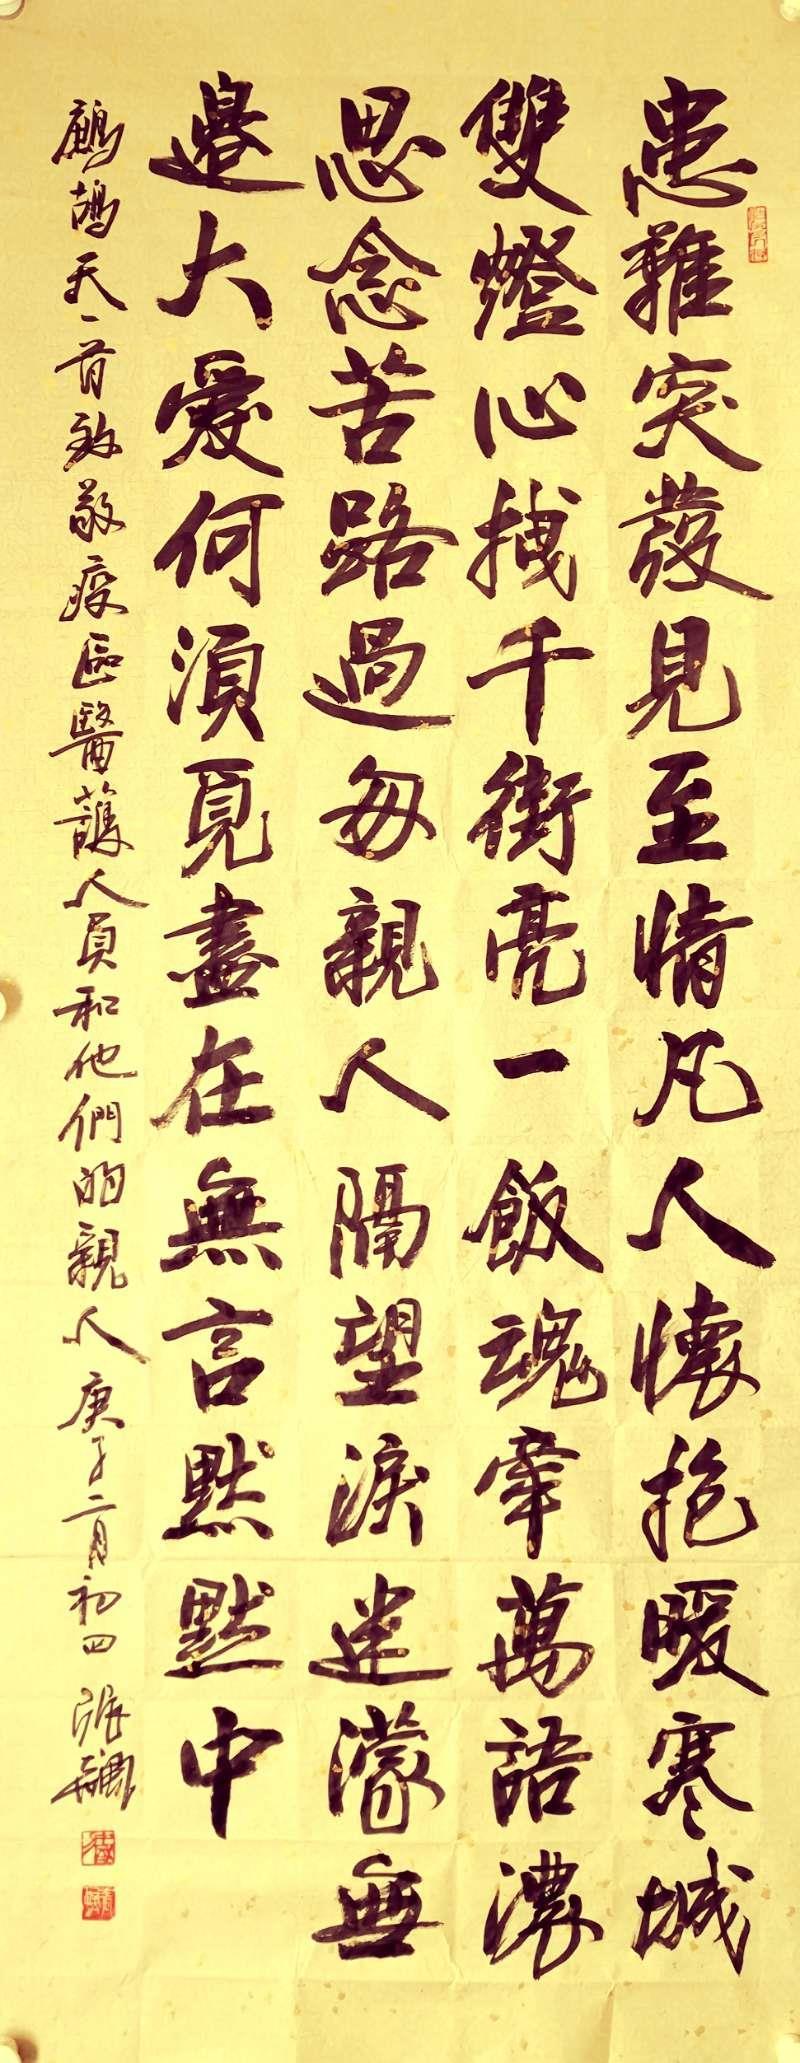 患難突發見至情凡人懷抱暖寒城
雙燈心拽千街亮一飯魂牽萬語濃
思念苦路過每親人隔望淚迷濛無
邊大愛何須覓盡在無言默默中
鷓鴣天一首致敬疫區醫護人員和他們的親人庚子二月初四張